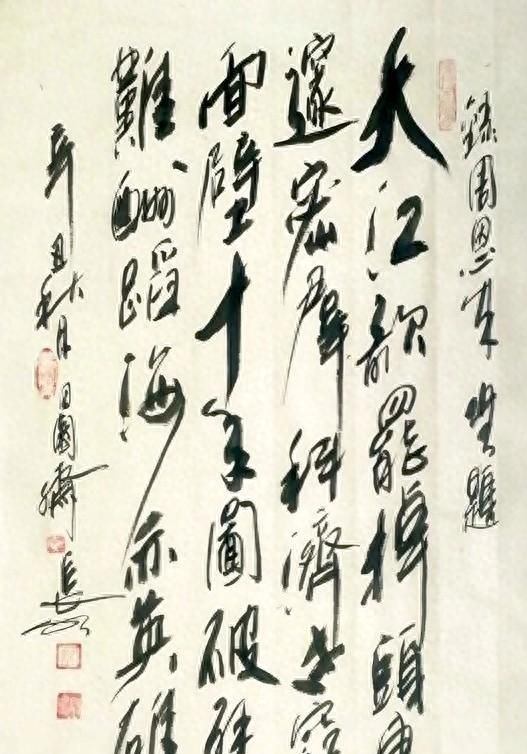 錄周恩來無題
大江歌罷掉頭東
邃密羣科濟世窮
面壁十年圖破壁
難酬蹈海亦英雄
辛丑秋月田園齋長